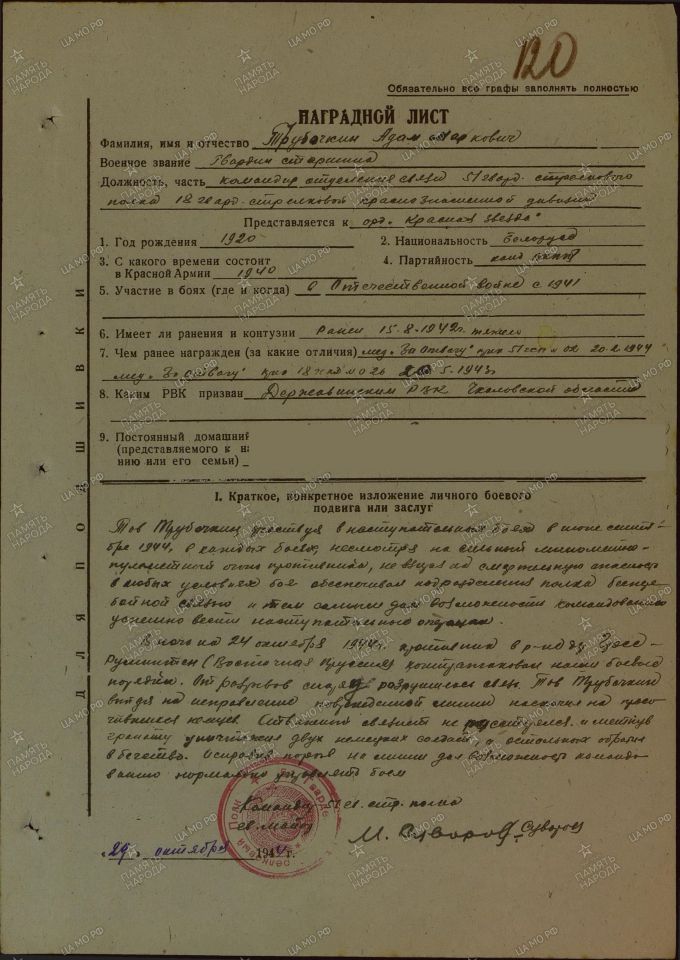 120
Обязательно все графы заполнять полностью
НАГРАДНОЙ ЛИСТ
Фамилия, имя и отчество Трубочкин Адам Маркович
Военное звание Гвардии старшина
Должность, часть командир отделения связи 51 гвард. стрелкового
полка 18 гвард. стрелковой краснознаменной дивизии
Представляется к орд. "Красная звезда"
1. Год рождения 1920
2. Национальность Белорус
3. С какого времени состоит
в Красной Армии 1940
4. Партийность канд ВКП/б
5. Участие в боях (где и когда) в Отечественной войне с 1941
6. Имеет ли ранения и контузии ранен 15.8.1942г. тяжело
7. Чем ранее награжден (за какие отличия) мед. "За отвагу" 20.2.1944
мед. "За отвагу" 5.1943г.
8. Каким РВК призван Державинским РВК Чкаловской области
9. Постоянный домашний
(представляемого к на
нию или его семьи)
ДЛЯ ПОДШИВКИ
I. Краткое, конкретное изложение личного боевого
подвига или заслуг
Тов Трубочкин участвуя в наступательных боях в июле сентя-
бре 1944г. в каждых боях, несмотря на сильный минометно-
пулеметный огонь противника, не взирая на смертельную опасность
в любых условиях боя обеспечивал подразделения полка беспере-
бойной связью и тем самым дал возможность командованию
успешно вести наступательные операции.
В ночь на 24 октября 1944г. противник в р-не д.
(Восточная Пруссия) контратаковал наши боевые
порядки. От разрывов снаряд разрушилась связь. Тов Трубочкин
выйдя на исправление поврежденной линии наскочил на просо-
чившихся немцев. Отважный связист не растерялся и метнув
гранату уничтожил двух немецких солдат, а остальных обратил
в бегство. Исправив порыв на линии дал возможность командо-
ванию нормально управлять боем
Командир 51 гв. стр. полка
гв. майор
М. Суворов Суворов
29 октября 1944 г.
ПАМЯТЬ НАРОДА
ЦА МО РФ